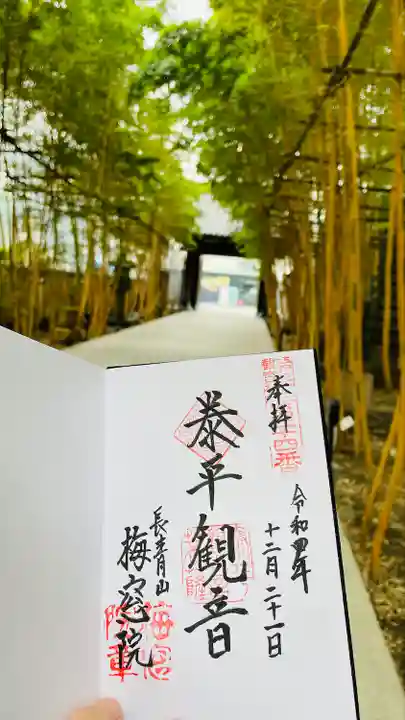 奉拝
令和四年
十二月二十一日
泰平観音
長青山
梅窓院